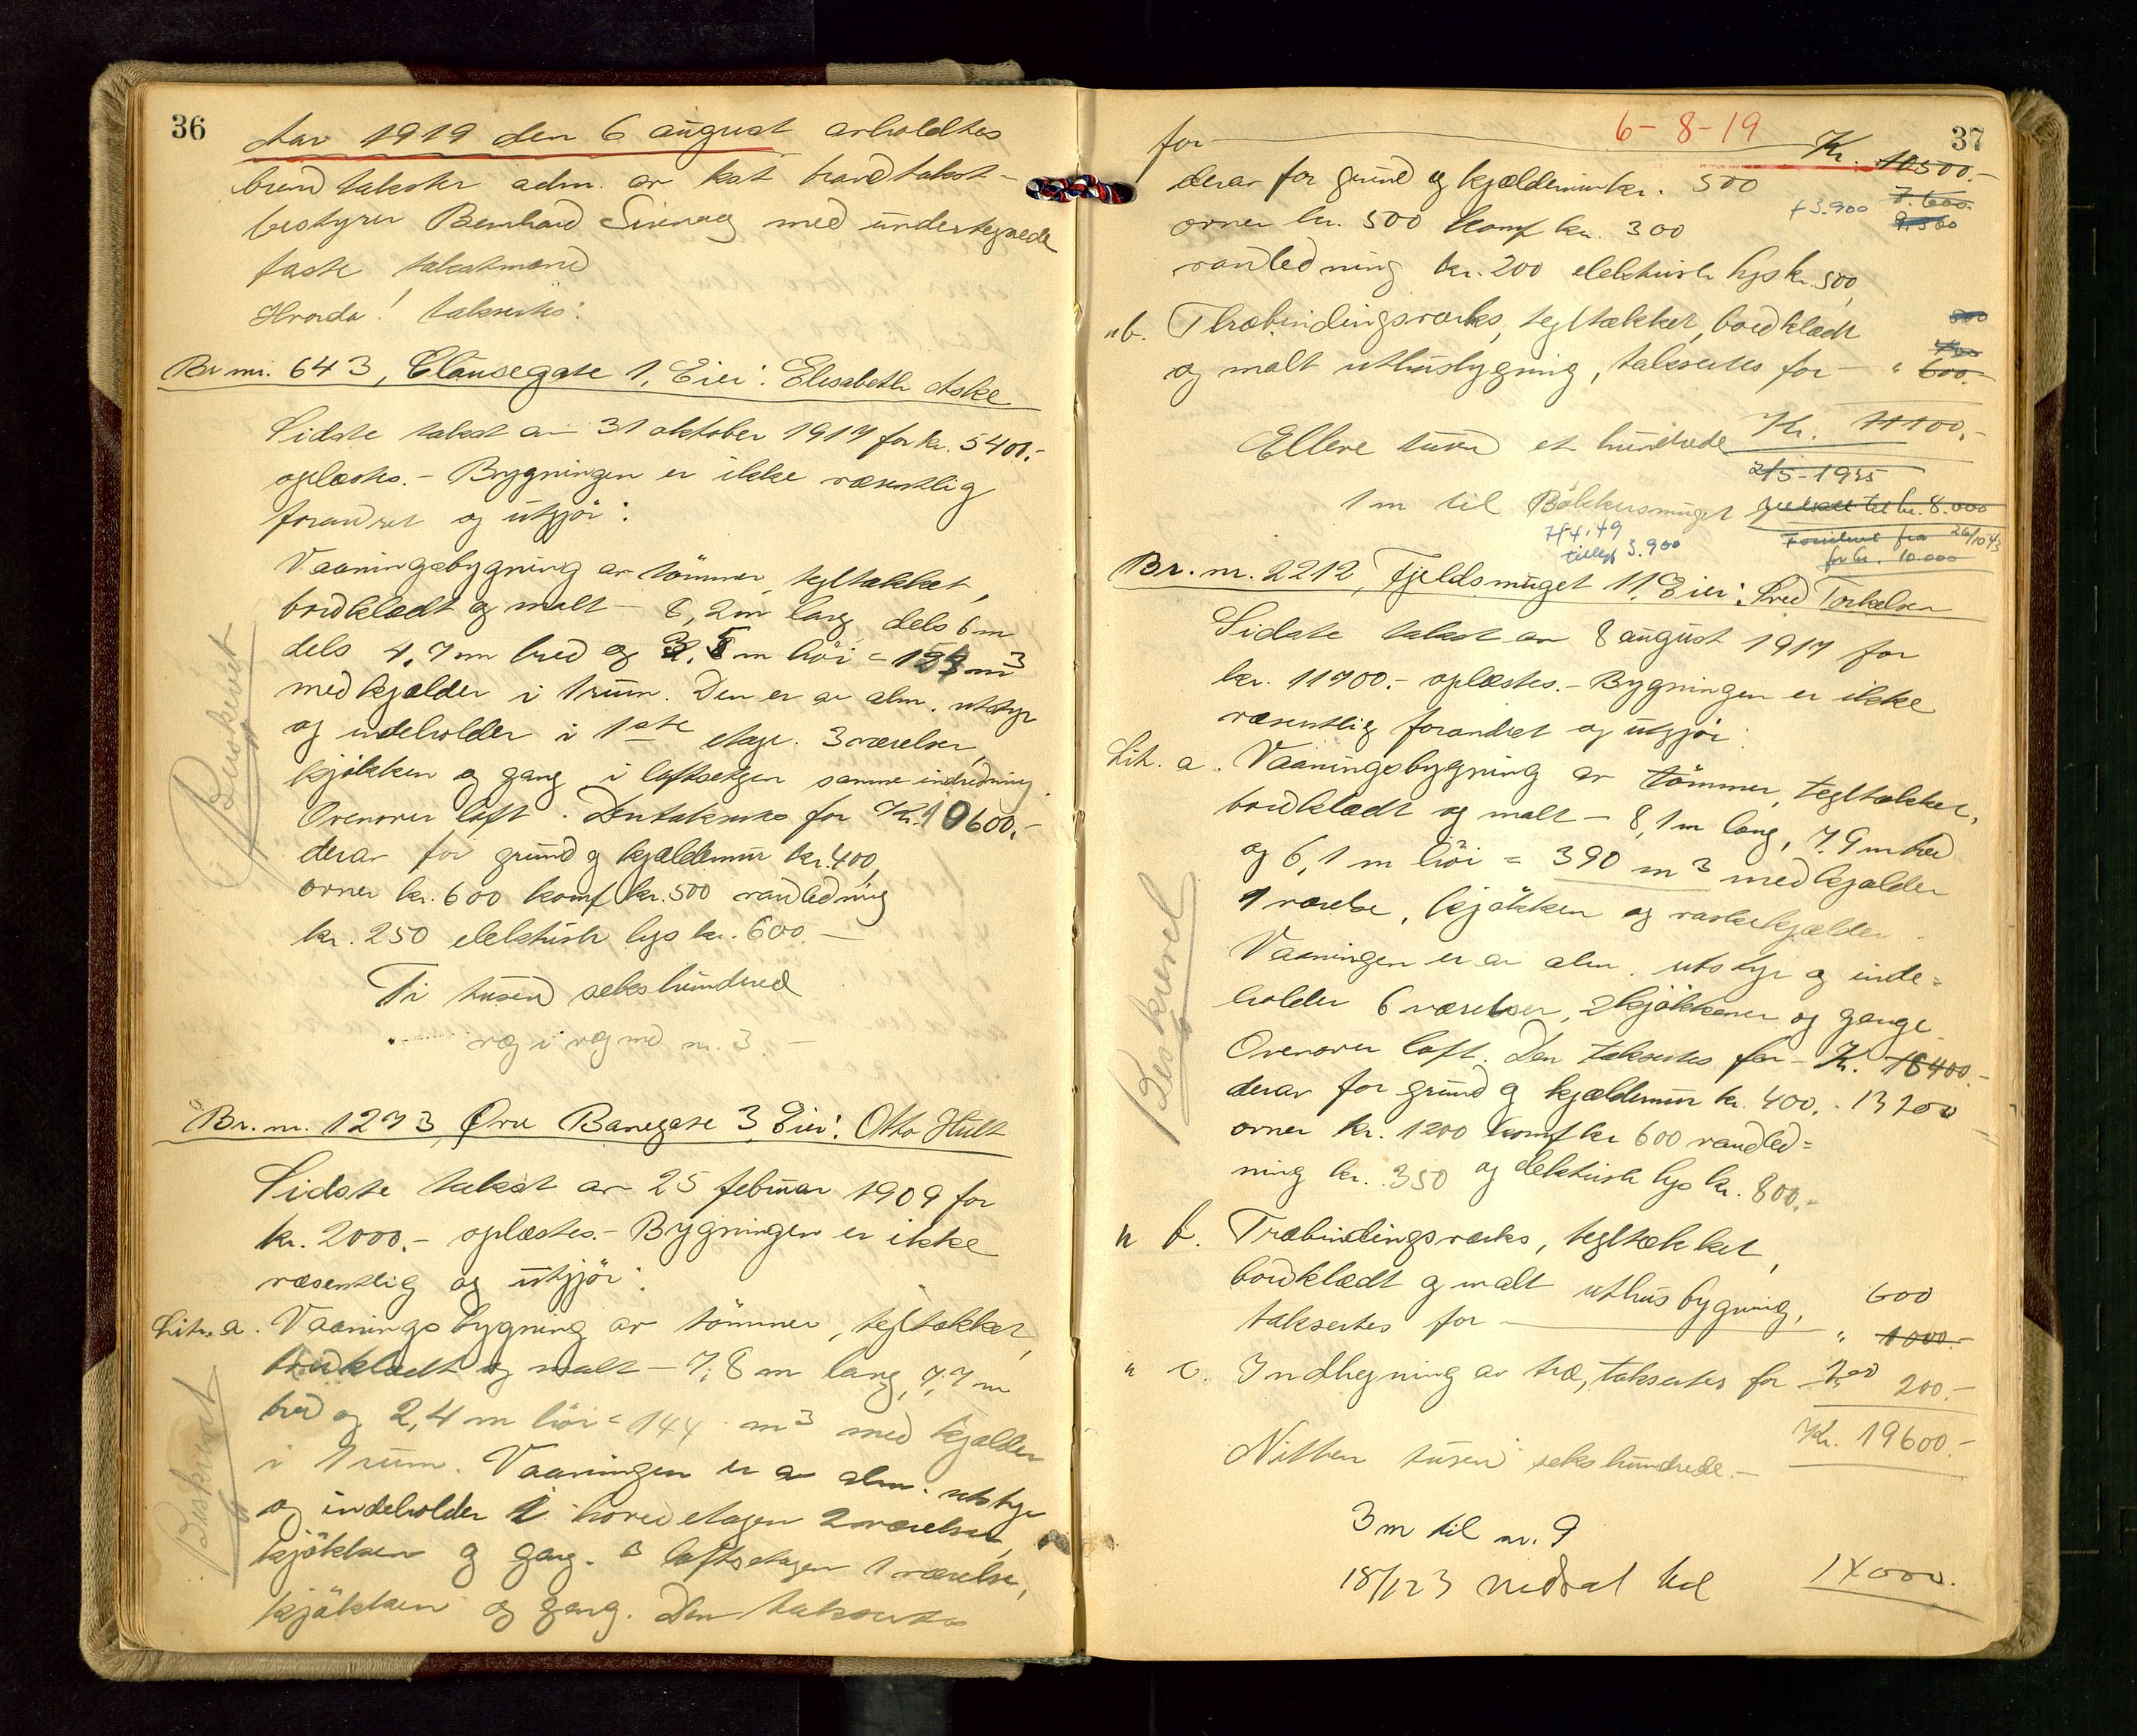 36
Aar 1919 den 6 august avholdtes
brandtakster adm. av kst brandtakst-
bestyrer Bernhard Sivevaag med undertegnede
faste takstmænd
Hvorda! taksertes:
Br. nr. 643, Clausegate 1, Eier: Elisabeth Aske
Sidste takst av 31 oktober 1917 for kr. 5400.-
oplæstes. - Bygningen er ikke væsentlig
forandret og utgjör:
Vaaningsbygning av tömmer, tegltækket,
bordklædt og malt - 8,2m lang, dels 6m
dels 4,7m bred og 3,5m höi = m3
med kjælder i 1 rum. Den er av alm. utstyr
og indeholder i 1ste etage. 3 værelser,
kjökken og gang i loftsetagen samme indredning.
Ovenover loft. Den taksertes for Kr. 10600.-
derav for grund og kjældermur kr. 400,
ovner kr. 600 komf kr. 500 vandledning
kr. 250 elektrisk lys kr. 600.-
Ti tusen sekshundred
væg i væg med nr. 3. -
Beskrevet
Br. nr. 1273, Øvre Banegate 3, Eier: Otto Hult
Sidste takst av 25 februar 1909 for
kr. 2000.- oplæstes. - Bygningen er ikke
væsentlig og utgjör:
Litr. a. Vaaningsbygning av tömmer, tegltækket,
bordklædt og malt - 7,8m lang, 7,7m
bred og 2,4m höi = 144 m3 med kjælder
i 1 rum. Vaaningen er av alm. utstyr
og indeholder i hovedetagen 2 værelser,
kjökken og gang. I loftsetagen 1 værelse,
kjökken og gang. Den taksertes
Beskrevet
37
6-8-19
for Kr. 10500.-
derav for grund og kjældermur kr. 500 7.600.
ovner kr. 500 komf kr. 300 + 3.900 9.500
vandledning kr. 200 elektrisk lys kr. 500,
" b. Træbindingsverks, tegltækket, bordklædt 500
400
og malt uthusbygning, taksertes for - " 600.-
Kr. 11100.-
Elleve tusen et hundrede
2/5-1935
1m til Bökkersmuget nedsatt til kr. 8.000
7/4.49 Forsikret fra 26/10 43
tillegg 3.900 for kr. 10.000
Br. nr. 2212, Fjeldsmuget 11, Eier: Fred Torkelsen
Sidste takst av 8 august 1917 for
kr. 11700.- oplæstes. - Bygningen er ikke
væsentlig forandret og utgjör:
Lit. a. Vaaningsbygning av tömmer, tegltækket,
bordklædt og malt - 8,1m lang, 7,9m bred
og 6,1m höi = 390 m3 med kjælder
1 værelse, kjökken og vaskekjælder.
Vaaningen er av alm. utstyr og inde=
holder 6 værelser, 2 kjökkener og gange
Ovenover loft. Den taksertes for - Kr. 18400.-
derav for grund og kjældermur kr. 400.- 13200
ovner kr. 1200 komf kr 600 vandled=
ning kr. 350 og elektrisk lys kr. 800.-
" b. Træbindingsverks, tegltækket,
bordklædt og malt uthusbygning, 600
taksertes for " 1000.-
" c. Indhegning av træ, taksertes for 200 200.-
Kr. 19600.-
Nitten tusen sekshundrede.-
3m til nr. 9
18/1 23 nedsat til 14000.
Beskrevet